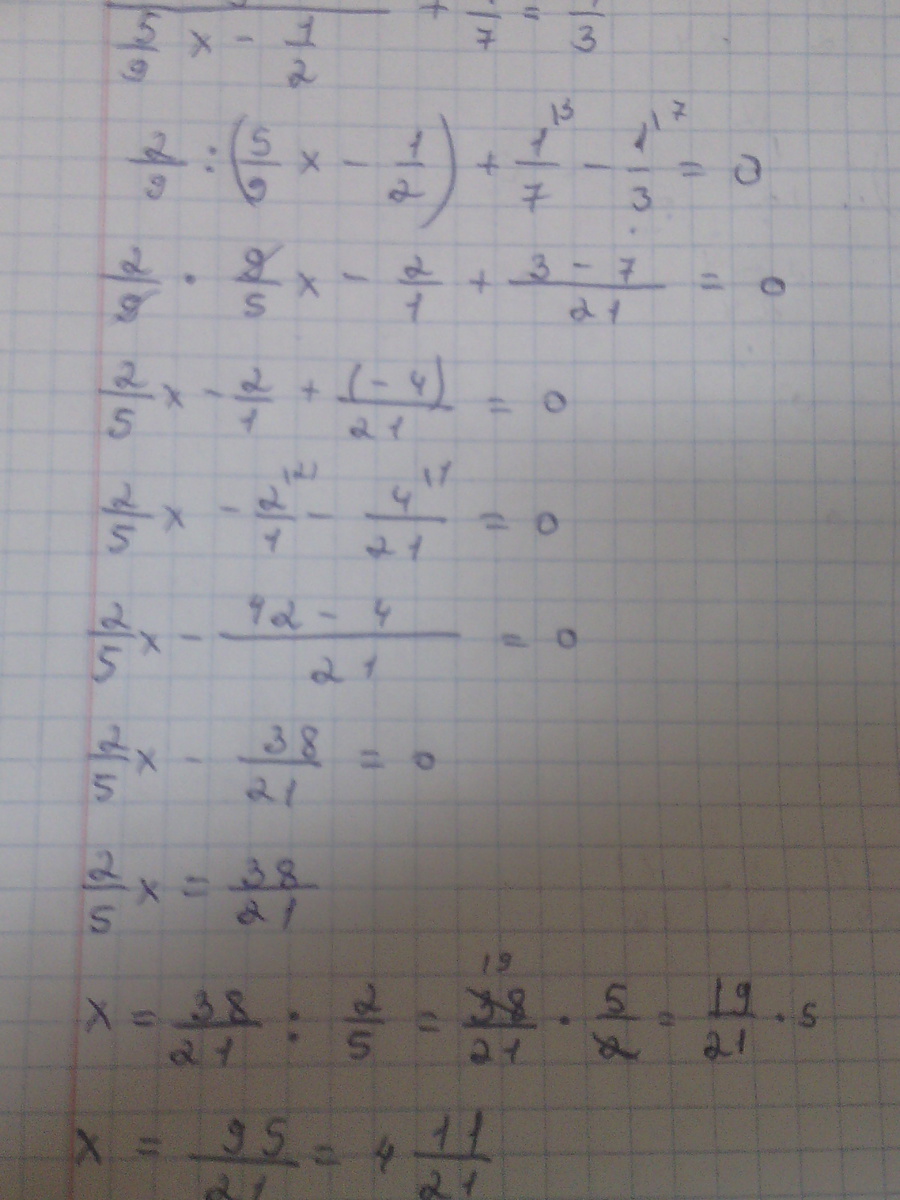 5/9 x - 1/2 + 1/7 = 1/3
2/9 : (5/9 x - 1/2) + 1/7^13 - 1/3^17 = 0
2/9 · 9/5 x - 2/1 + (3 - 7)/21 = 0
2/5 x - 2/1 + (-4)/21 = 0
2/5 x - 2/1^121 - 4/21^11 = 0
2/5 x - (42 - 4)/21 = 0
2/5 x - 38/21 = 0
2/5 x = 38/21
x = 38/21 : 2/5 = 38^19/21 · 5/2 = 19/21 · 5
x = 95/21 = 4 11/21